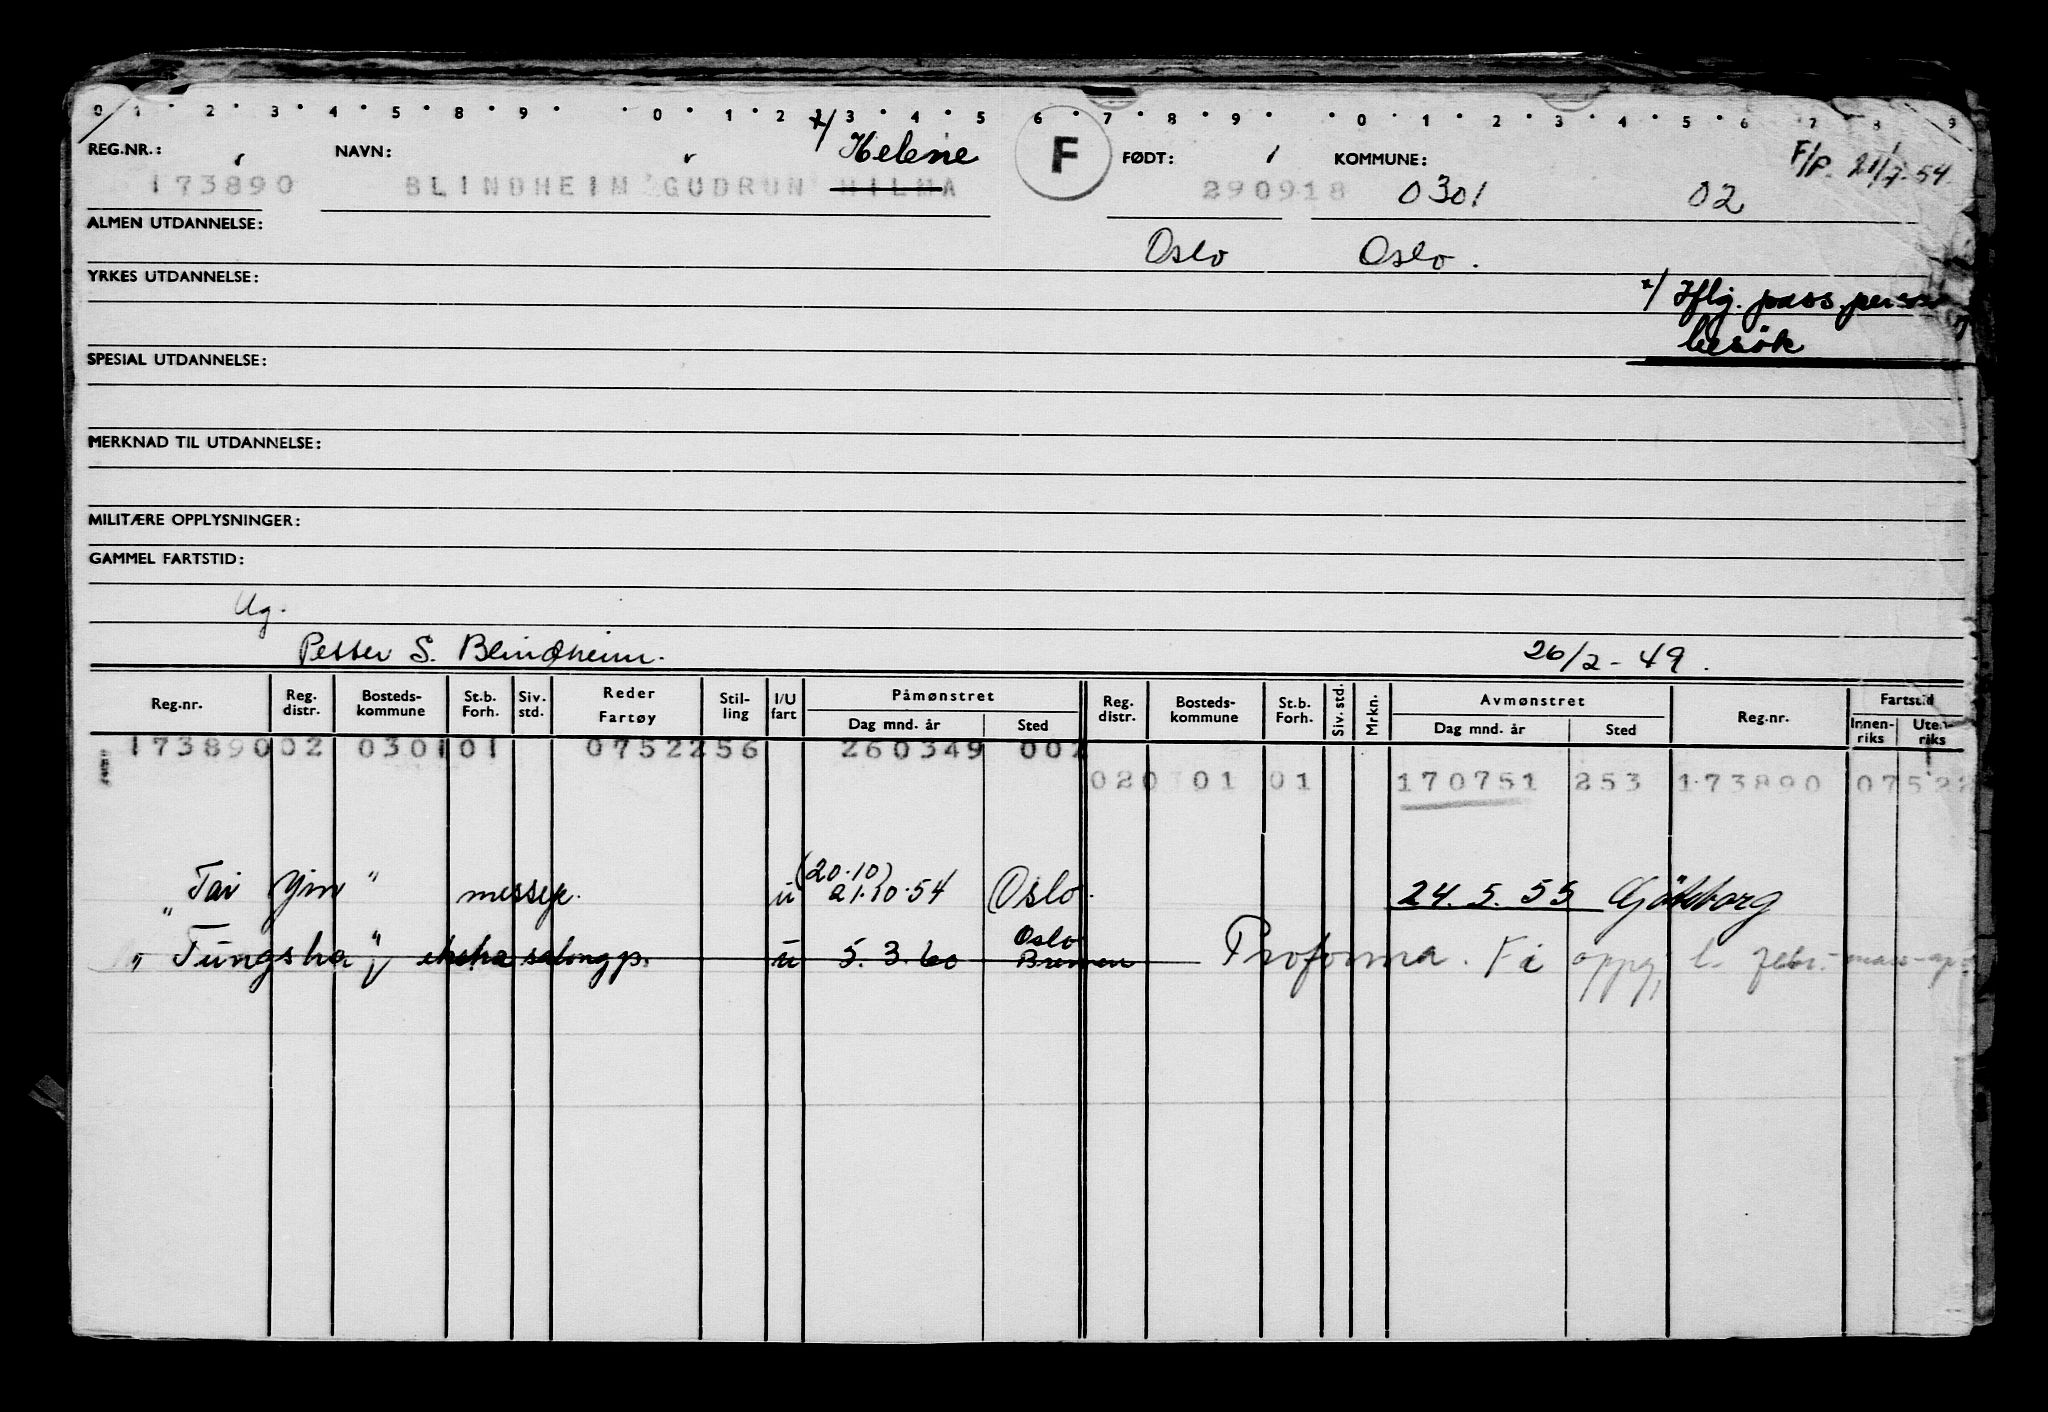 0 1 2 3 4 5 8 9 0 1 2 3 4 5 6 7 8 9 0 1 2 3 4 5 6 7 8 9
REG.NR.: NAVN: x/ Helene F FØDT: KOMMUNE: F/P. 21/7-54
173890 BLINDHEIM GUDRUN HILMA 290918 0301 02
ALMEN UTDANNELSE: Oslo Oslo.
YRKES UTDANNELSE: x/ Iflg. pass. pers.
besök
SPESIAL UTDANNELSE:
MERKNAD TIL UTDANNELSE:
MILITÆRE OPPLYSNINGER:
GAMMEL FARTSTID:
Ug.
Petter S. Blindheim. 26/2-49.
Reg.nr. Reg. distr. Bosteds-kommune St.b. Forh. Siv. std. Reder Fartøy Stil-ling I/U fart Påmønstret Dag mnd. år Sted Reg. distr. Bosteds-kommune St.b. Forh. Siv. std. Mrkn. Avmønstret Dag mnd. år Sted Reg.nr. Fartstid Innen-riks Uten-riks
173890 02 0301 01 07522 56 260349 002
02 0301 01 170751 253 173890 07522
"Tai Yin" messep. u (20.10) 21.10.54 Oslo. 24.5.55 Göteborg
Oslo
"Tungsha" ekstra salongp. u 5.3.60 Bremen Proforma. Fi oppg, l. febr.-mars-ap